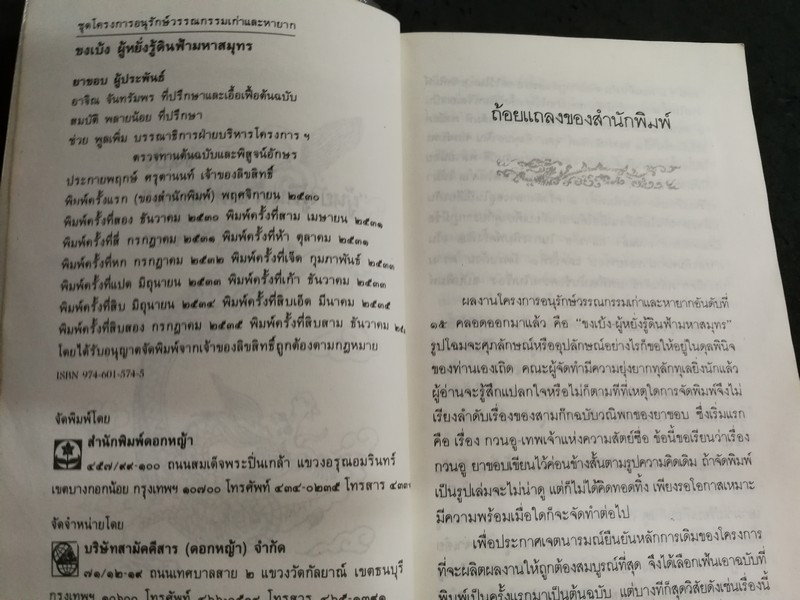 ชุดโครงการอนุรักษ์วรรณกรรมเก่าและหายาก
ขงเบ้ง ผู้หยั่งรู้ดินฟ้ามหาสมุทร
ยาขอบ ผู้ประพันธ์
อาจิณ จันทรัมพร ที่ปรึกษาและเอื้อเฟื้อต้นฉบับ
สมบัติ พลายน้อย ที่ปรึกษา
ช่วย พูลเพิ่ม บรรณาธิการฝ่ายบริหารโครงการ ฯ
ตรวจทานต้นฉบับและพิสูจน์อักษร
ประกายพฤกษ์ ศรุตานนท์ เจ้าของลิขสิทธิ์
พิมพ์ครั้งแรก (ของสำนักพิมพ์) พฤศจิกายน ๒๕๓๐
พิมพ์ครั้งที่สอง ธันวาคม ๒๕๓๐ พิมพ์ครั้งที่สาม เมษายน ๒๕๓๑
พิมพ์ครั้งที่สี่ กรกฎาคม ๒๕๓๑ พิมพ์ครั้งที่ห้า ตุลาคม ๒๕๓๑
พิมพ์ครั้งที่หก กรกฎาคม ๒๕๓๒ พิมพ์ครั้งที่เจ็ด กุมภาพันธ์ ๒๕๓๓
พิมพ์ครั้งที่แปด มิถุนายน ๒๕๓๓ พิมพ์ครั้งที่เก้า ธันวาคม ๒๕๓๓
พิมพ์ครั้งที่สิบ มิถุนายน ๒๕๓๔ พิมพ์ครั้งที่สิบเอ็ด มีนาคม ๒๕๓๕
พิมพ์ครั้งที่สิบสอง กรกฎาคม ๒๕๓๕ พิมพ์ครั้งที่สิบสาม ธันวาคม
โดยได้รับอนุญาตจัดพิมพ์จากเจ้าของลิขสิทธิ์ถูกต้องตามกฎหมาย
ISBN 974-601-574-5
จัดพิมพ์โดย
สำนักพิมพ์ดอกหญ้า
๔๕๗/๙๙-๑๐๐ ถนนสมเด็จพระปิ่นเกล้า แขวงอรุณอมรินทร์
เขตบางกอกน้อย กรุงเทพฯ ๑๐๗๐๐ โทรศัพท์ ๔๓๔-๐๒๓๕ โทรสาร
จัดจำหน่ายโดย
บริษัทสามัคคีสาร (ดอกหญ้า) จำกัด
๗๑/๑๒-๑๙ ถนนเทศบาลสาย ๒ แขวงวัดกัลยาณ์ เขตธนบุรี
กรุงเทพฯ ๑๐๖๐๐ โทรศัพท์ โทรสาร
ถ้อยแถลงของสำนักพิมพ์
ผลงานโครงการอนุรักษ์วรรณกรรมเก่าและหายากอันดับที่
๑๕ คลอดออกมาแล้ว คือ "ขงเบ้ง-ผู้หยั่งรู้ดินฟ้ามหาสมุทร"
รูปโฉมจะศุภลักษณ์หรืออุปลักษณ์อย่างไรก็ขอให้อยู่ในดุลพินิจ
ของท่านเองเถิด คณะผู้จัดทำมีความยุ่งยากทุลักทุเลยิ่งนักแล้ว
ผู้อ่านจะรู้สึกแปลกใจหรือไม่ก็ตามทีที่เหตุใดการจัดพิมพ์จึงไม่
เรียงลำดับเรื่องของสามก๊กฉบับวณิพกของยาขอบ ซึ่งเริ่มแรก
คือ เรื่อง กวนอู-เทพเจ้าแห่งความสัตย์ซื่อ ข้อนี้ขอเรียนว่าเรื่อง
กวนอู ยาขอบเขียนไว้ค่อนข้างสั้นตามรูปความคิดเดิม ถ้าจัดพิมพ์
เป็นรูปเล่มจะไม่น่าดู แต่ก็ไม่ได้คิดทอดทิ้ง เพียงรอโอกาสเหมาะ
มีความพร้อมเมื่อใดก็จะจัดทำต่อไป
เพื่อประกาศเจตนารมณ์ยืนยันหลักการเดิมของโครงการ
ที่จะผลิตผลงานให้ถูกต้องสมบูรณ์ที่สุด จึงได้เลือกเฟ้นเอาฉบับที่
พิมพ์เป็นครั้งแรกมาเป็นต้นฉบับ แต่บางทีก็สุดวิสัยดังเช่นเรื่องนี้